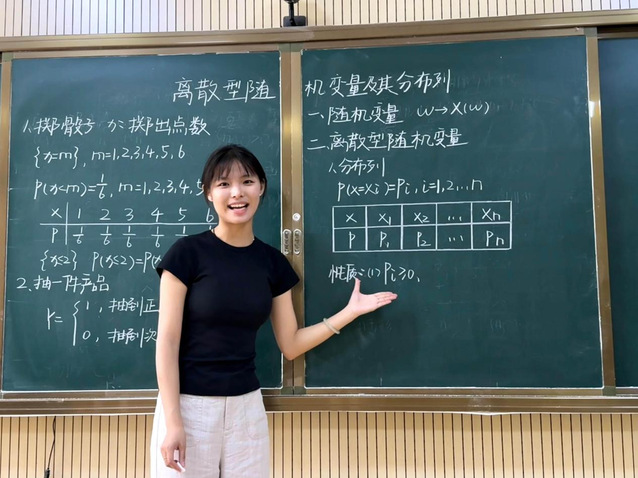 离散型随机变量及其分布列
1.掷骰子 X:掷出点数
{X=m}, m=1,2,3,4,5,6
P(X=m)=1/6, m=1,2,3,4,5
X 1 2 3 4 5 6
P 1/6 1/6 1/6 1/6 1/6
{X≤2} P(X≤2)=P(X
2.抽一件产品
Y={1, 抽到正
0, 抽到次
一.随机变量 ω→X(ω)
二.离散型随机变量
1.分布列
P(X=Xi)=Pi, i=1,2,...n
X X1 X2 ... Xn
P P1 P2 ... Pn
性质:(1)Pi≥0,